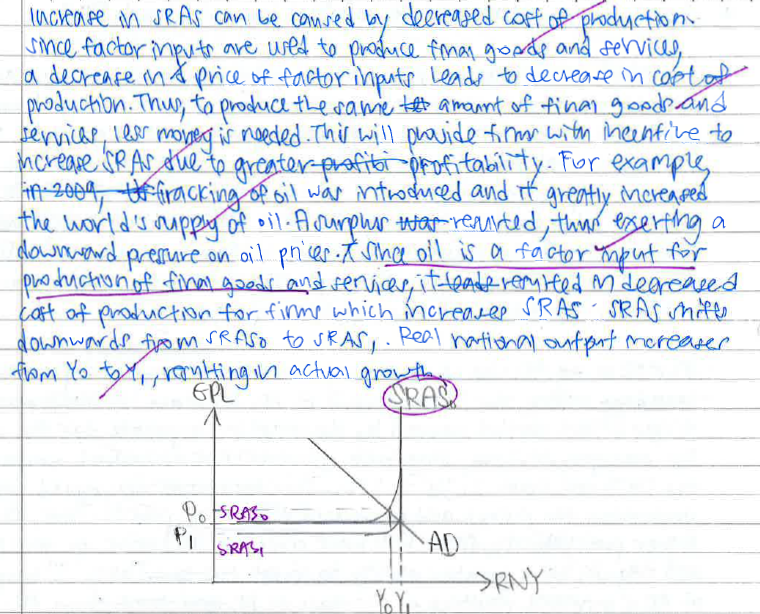 Increase in SRAS can be caused by decreased cost of production.
Since factor inputs are used to produce final goods and services,
a decrease in price of factor inputs leads to decrease in cost of
production. Thus, to produce the same amount of final goods and
services, less money is needed. This will provide firms with incentive to
increase SRAS due to greater profitability. For example,
in 2009, fracking of oil was introduced and it greatly increased
the world's supply of oil. A surplus resulted, thus exerting a
downward pressure on oil prices. Since oil is a factor input for
production of final goods and services, it resulted in decreased
cost of production for firms which increases SRAS. SRAS shifts
downwards from SRAS0 to SRAS1. Real national output increases
from Y0 to Y1, resulting in actual growth.
GPL
SRAS0
P0
SRAS0
P1
SRAS1
AD
RNY
Y0 Y1